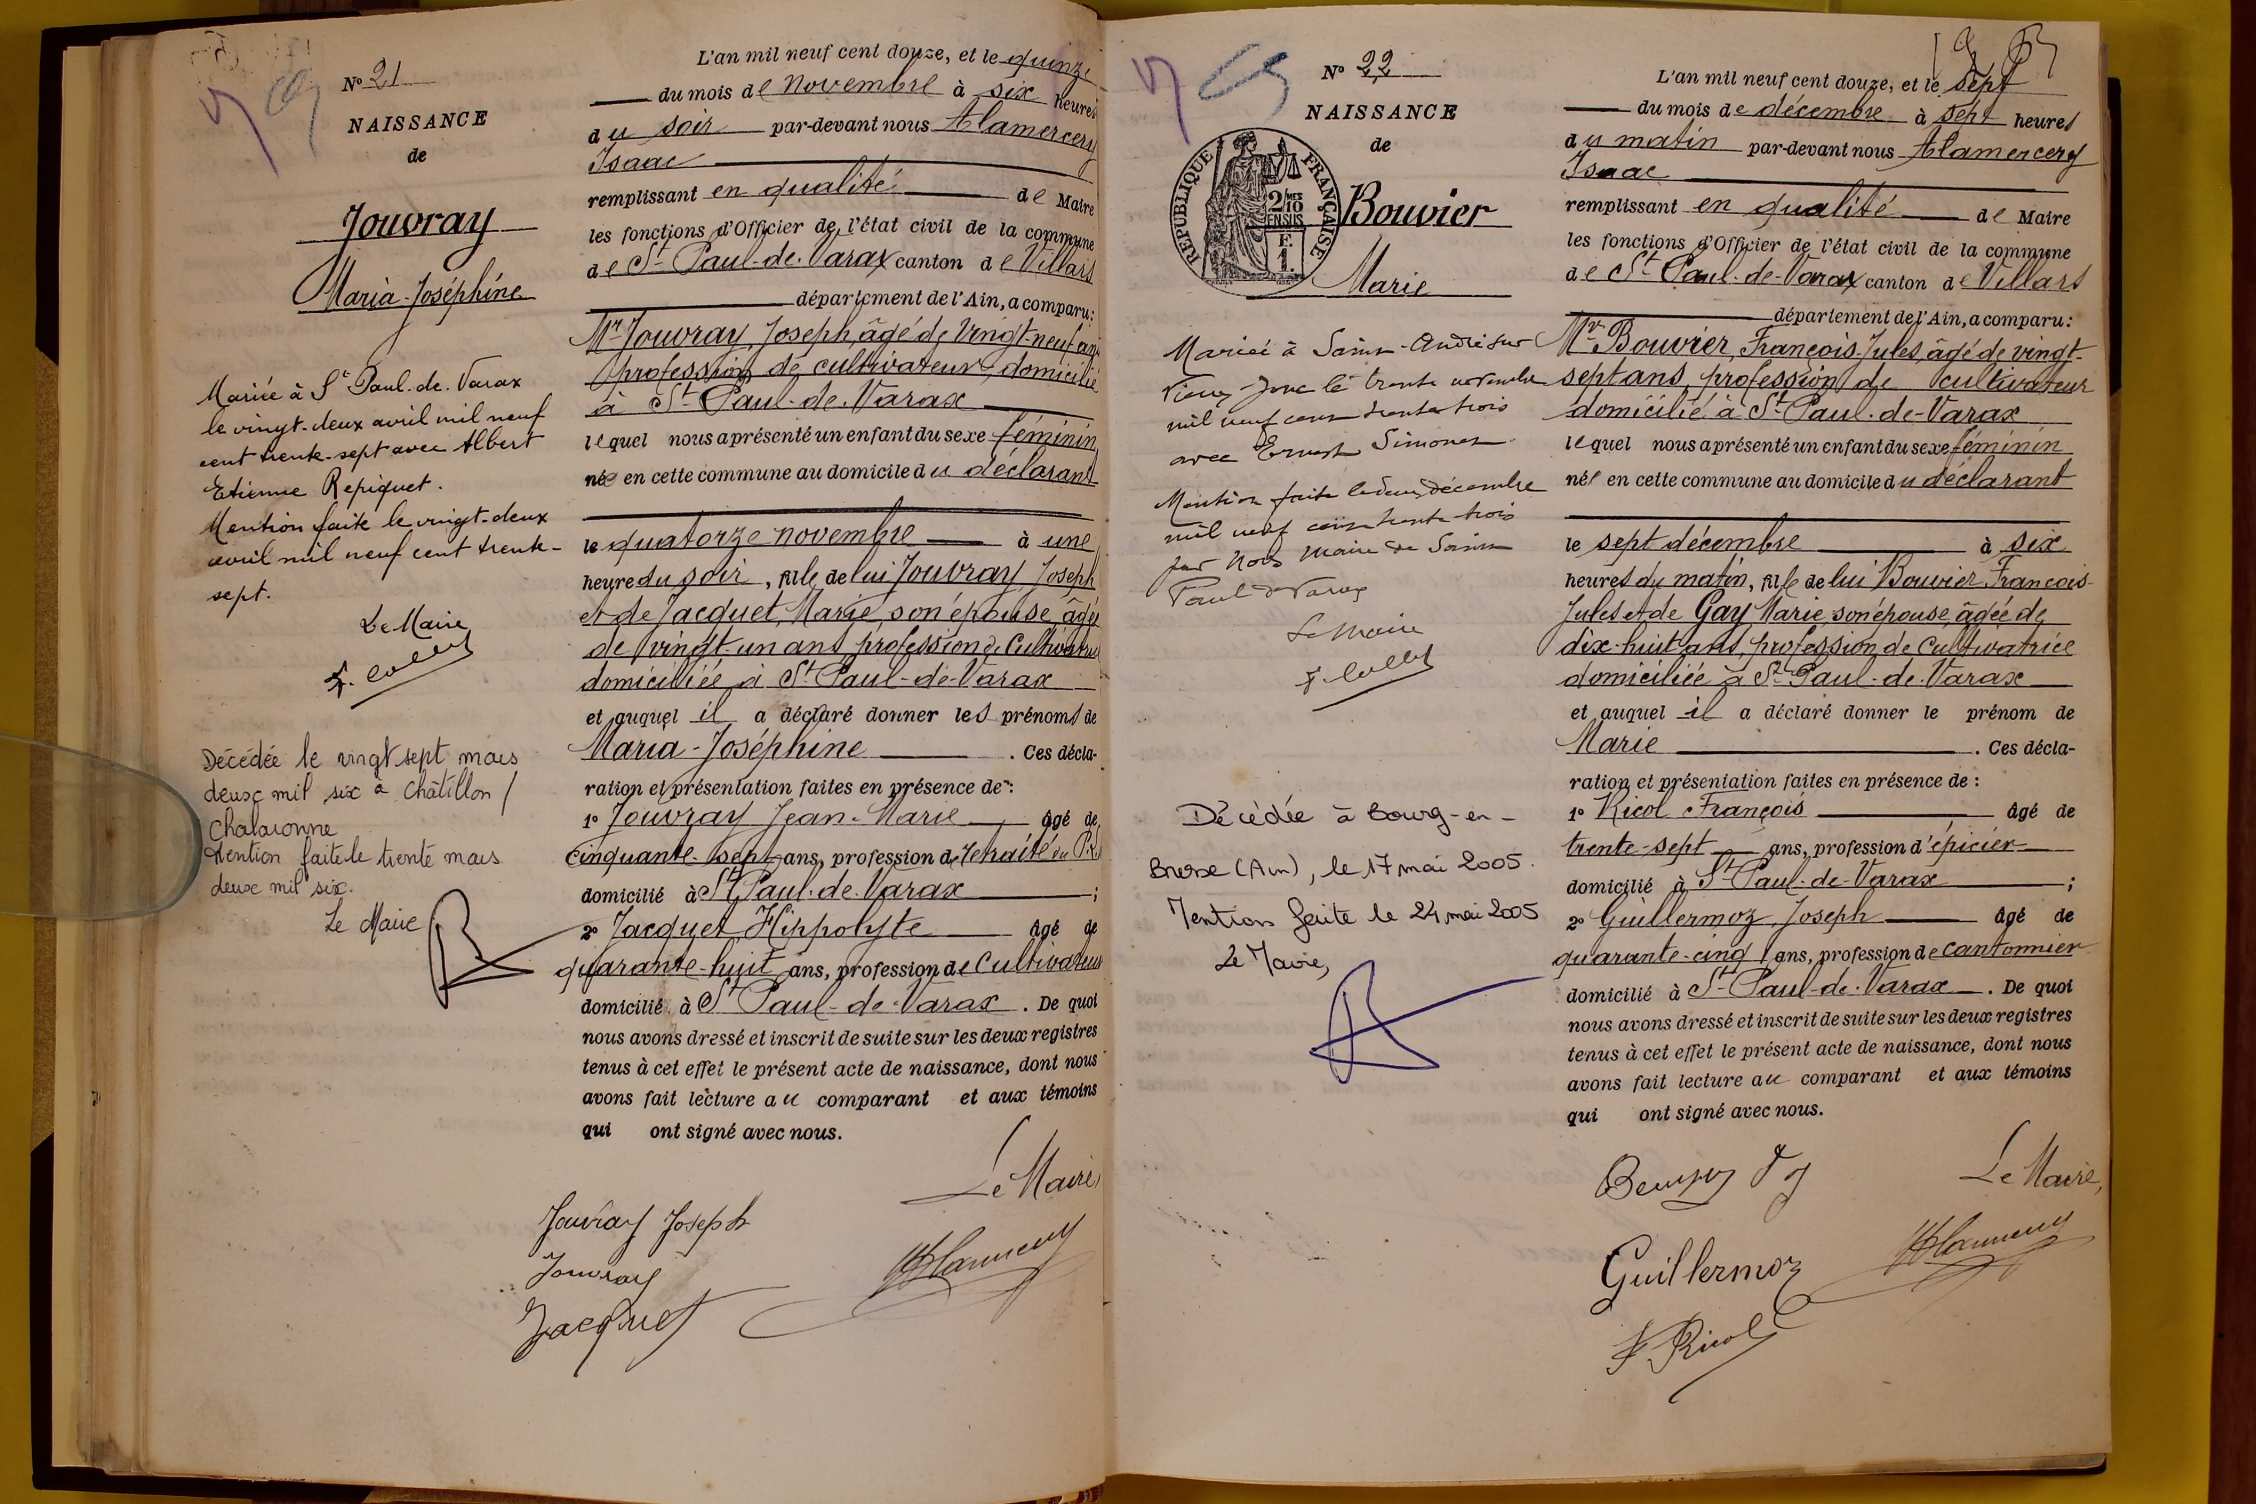 Nº 21
NAISSANCE
de
Jouvray
Maria-Joséphine
Mariée à St Paul-de-Varax
le vingt-deux avril mil neuf
cent trente-sept avec Albert
Etienne Repiquet.
Mention faite le vingt-deux
avril mil neuf cent trente-
sept.
Le Maire
Décédée le vingt sept mars
deux mil six à Châtillon /
Chalaronne
Mention faite le trente mars
deux mil six.
Le Maire
L'an mil neuf cent douze, et le quinze
du mois de novembre à six heures
du soir par-devant nous Alamercery
Isaac
remplissant en qualité de Maire
les fonctions d'Officier de l'état civil de la commune
de St Paul-de-Varax canton de Villars
département de l'Ain, a comparu:
Mr Jouvray, Joseph, âgé de vingt-neuf ans
profession de cultivateur, domicilié
à St Paul-de-Varax
lequel nous a présenté un enfant du sexe féminin
née en cette commune au domicile du déclarant
le quatorze novembre à une
heure du soir, fille de lui Jouvray Joseph
et de Jacquet, Marie, son épouse, âgée
de vingt-un ans, profession de cultivatrice
domiciliée à St Paul-de-Varax
et auquel il a déclaré donner les prénoms de
Maria-Joséphine . Ces décla-
ration et présentation faites en présence de :
1º Jouvray Jean-Marie âgé de
cinquante-sept ans, profession de retraité du
domicilié à St Paul-de-Varax ;
2º Jacquet, Hippolyte âgé de
quarante-huit ans, profession de cultivateur
domicilié à St Paul-de-Varax . De quoi
nous avons dressé et inscrit de suite sur les deux registres
tenus à cet effet le présent acte de naissance, dont nous
avons fait lecture au comparant et aux témoins
qui ont signé avec nous.
Le Maire,
Jouvray Joseph
Jouvray
Jacquet
Nº 22
NAISSANCE
de
RÉPUBLIQUE FRANÇAISE
2/10 MES
EN SUS
F.
1.
Bouvier
Marie
Mariée à Saint-André sur
Vieux-Jonc le trente novembre
mil neuf cent trente trois
avec Ernest Simonet.
Mention faite le deux décembre
mil neuf cent trente trois
par Nous Maire de Saint
Paul de Varax
Le Maire
Décédée à Bourg-en-
Bresse (Ain), le 17 mai 2005.
Mention faite le 24 mai 2005
Le Maire,
L'an mil neuf cent douze, et le sept
du mois de décembre à sept heures
du matin par-devant nous Alamercery
Isaac
remplissant en qualité de Maire
les fonctions d'Officier de l'état civil de la commune
de St Paul-de-Varax canton de Villars
département de l'Ain, a comparu:
Mr Bouvier, François-Jules, âgé de vingt-
sept ans, profession de cultivateur
domicilié à St Paul-de-Varax
lequel nous a présenté un enfant du sexe féminin
née en cette commune au domicile du déclarant
le sept décembre à six
heures du matin, fille de lui Bouvier François-
Jules et de Gay Marie son épouse âgée de
dix-huit ans, profession de cultivatrice
domiciliée à St Paul-de-Varax
et auquel il a déclaré donner le prénom de
Marie . Ces décla-
ration et présentation faites en présence de :
1º Ricol François âgé de
trente-sept ans, profession d'épicier
domicilié à St Paul-de-Varax ;
2º Guillermoz, Joseph âgé de
quarante-cinq ans, profession de cantonnier
domicilié à St Paul-de-Varax . De quoi
nous avons dressé et inscrit de suite sur les deux registres
tenus à cet effet le présent acte de naissance, dont nous
avons fait lecture au comparant et aux témoins
qui ont signé avec nous.
Le Maire,
Guillermoz
F. Ricol